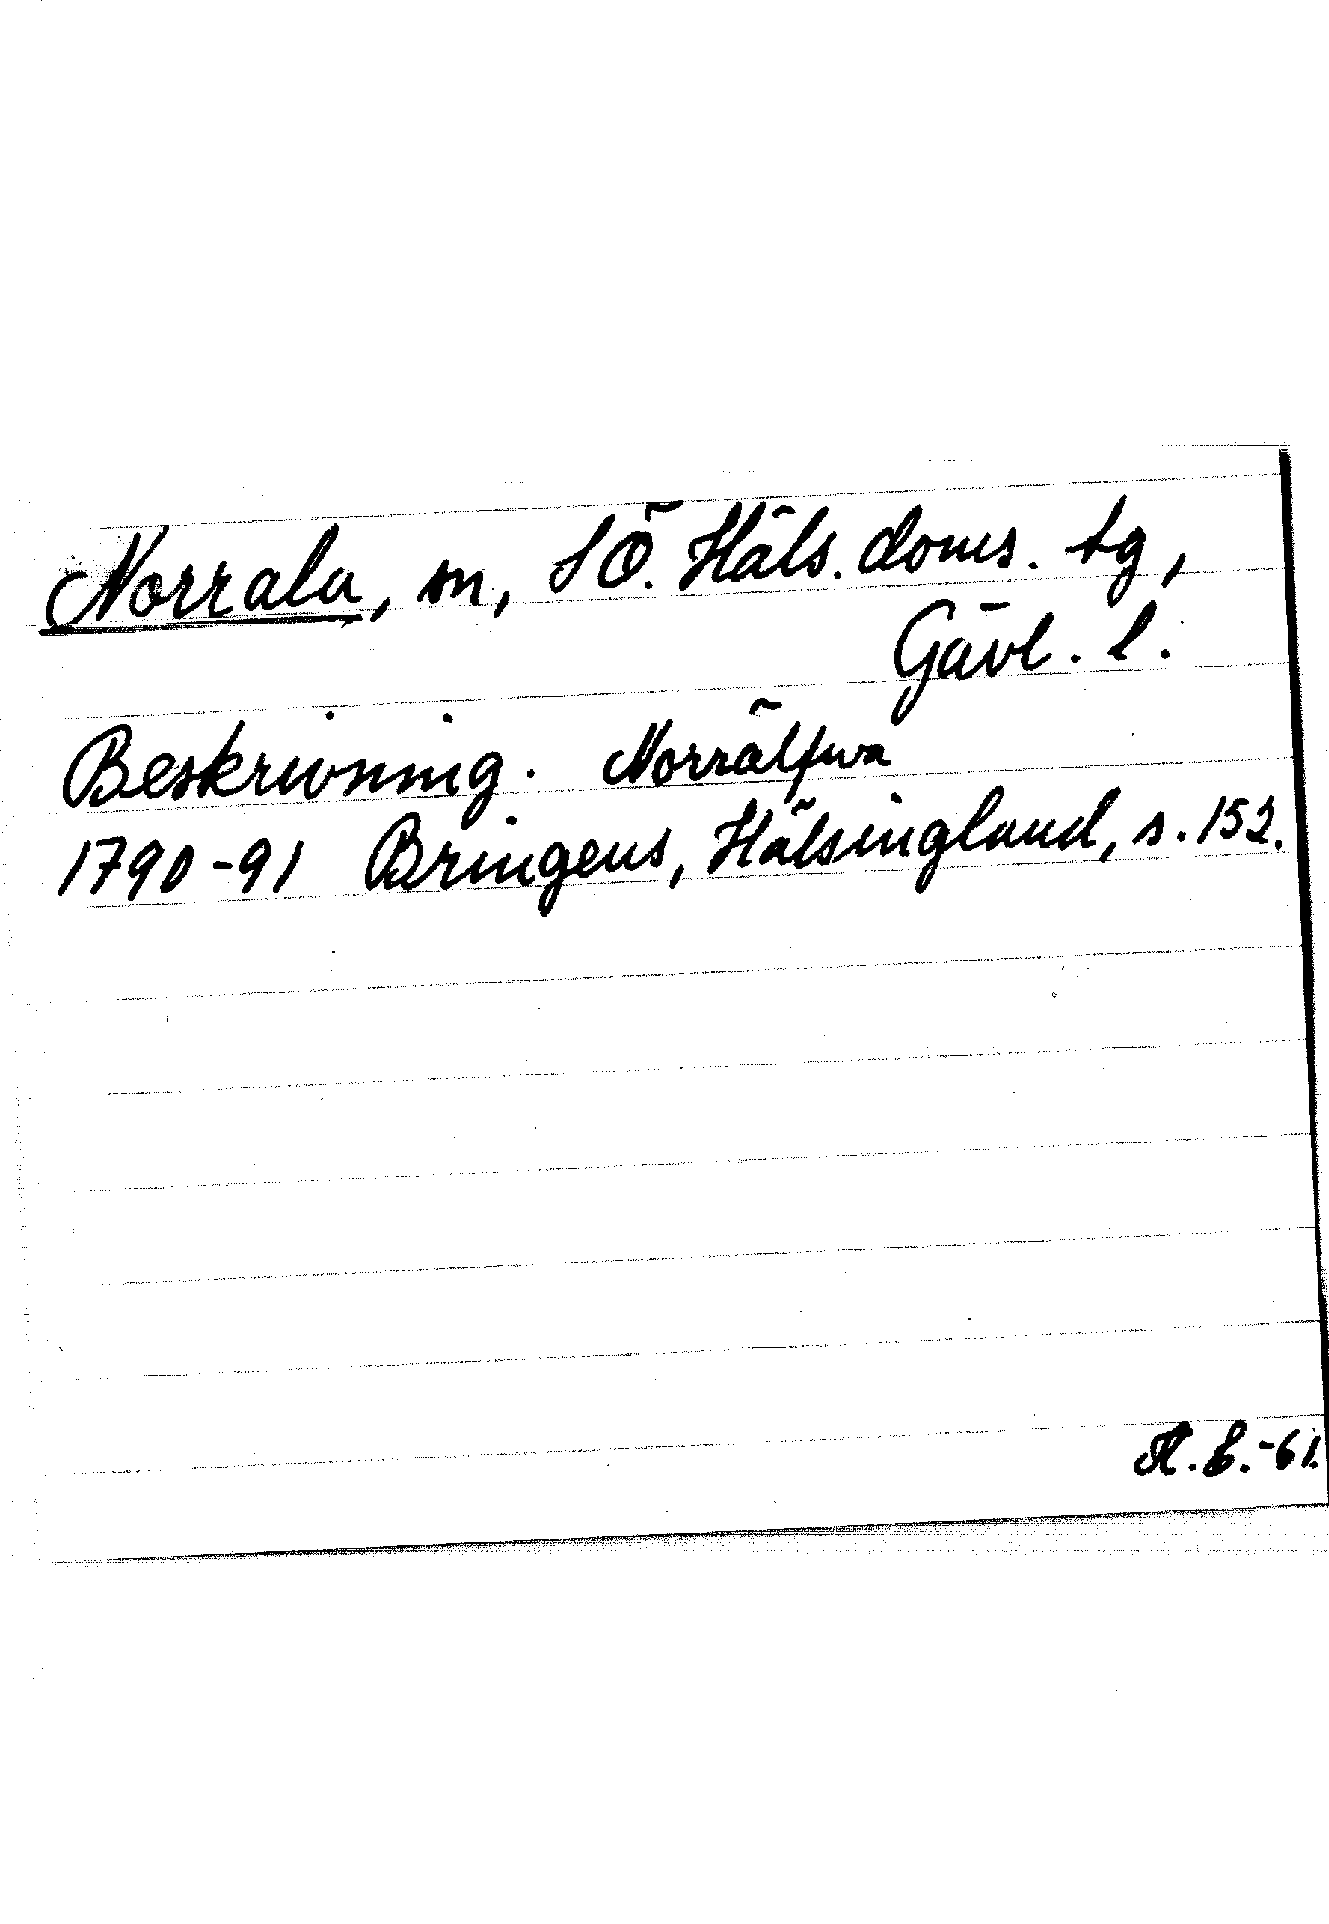 Norrala, sn, SÖ. Häls. doms. tg,
Gävl. l.
Beskrivning. Norrälfwa
1790-91 Bringéus, Hälsingland, s. 152.
A. E. -61.